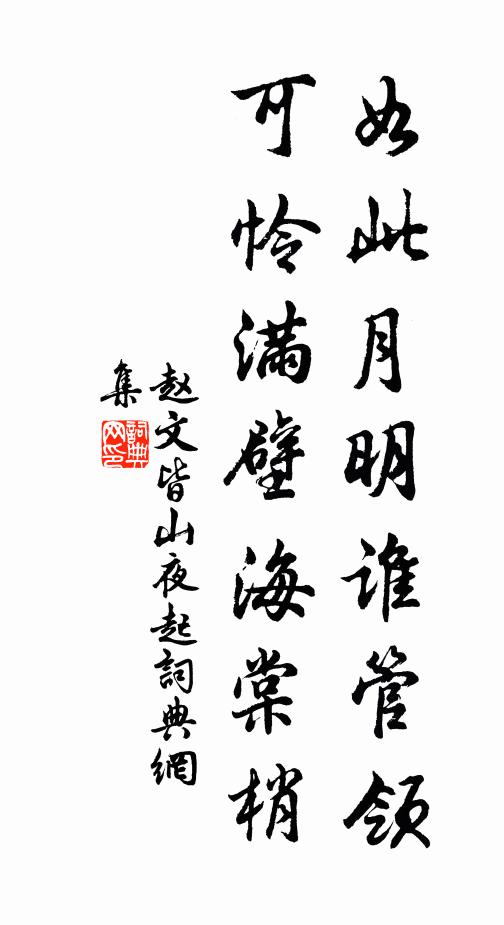 如此月明谁管领
可怜满壁海棠梢
赵文皆山夜起詞典網
集
詞典网印